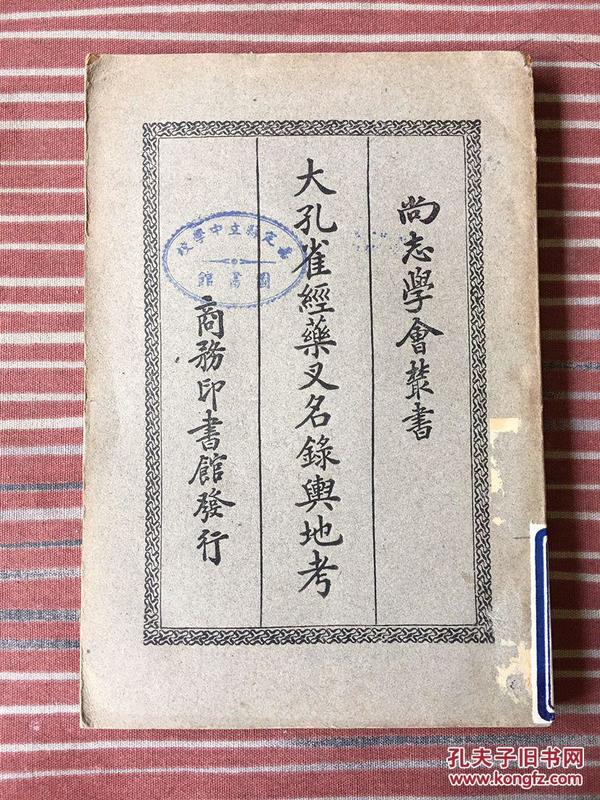 尚志學會叢書
大孔雀經藥叉名錄輿地考
商務印書館發行
嘉定縣立中學校
圖書館
孔夫子旧书网
www.kongfz.com